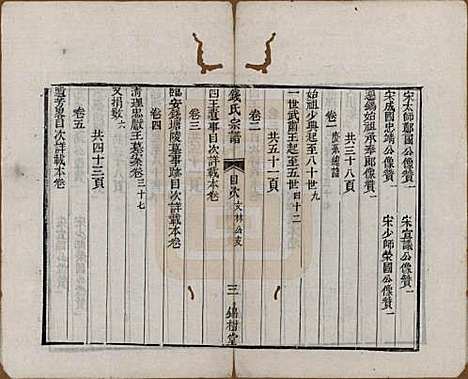 宋太師鄭國公像贊一 宋宣議公像贊一
宋成國忠靖公像贊一 宋少師榮國公像贊一
遷錫始祖承奉郎像贊一
共三十八頁
卷一 慶系總譜
始祖少典起至八十世 九
一世武肅王起至五世 四十二
共五十一頁
卷二
錢氏宗譜 目次 文林公支 三 錦樹堂
四王遺事目次詳載本卷
卷三
臨安錢塘陵墓事跡目次詳載本卷
卷四
清理忠獻王墓案 三十七
又捐數 六
共四十三頁
卷五
目次詳載本卷